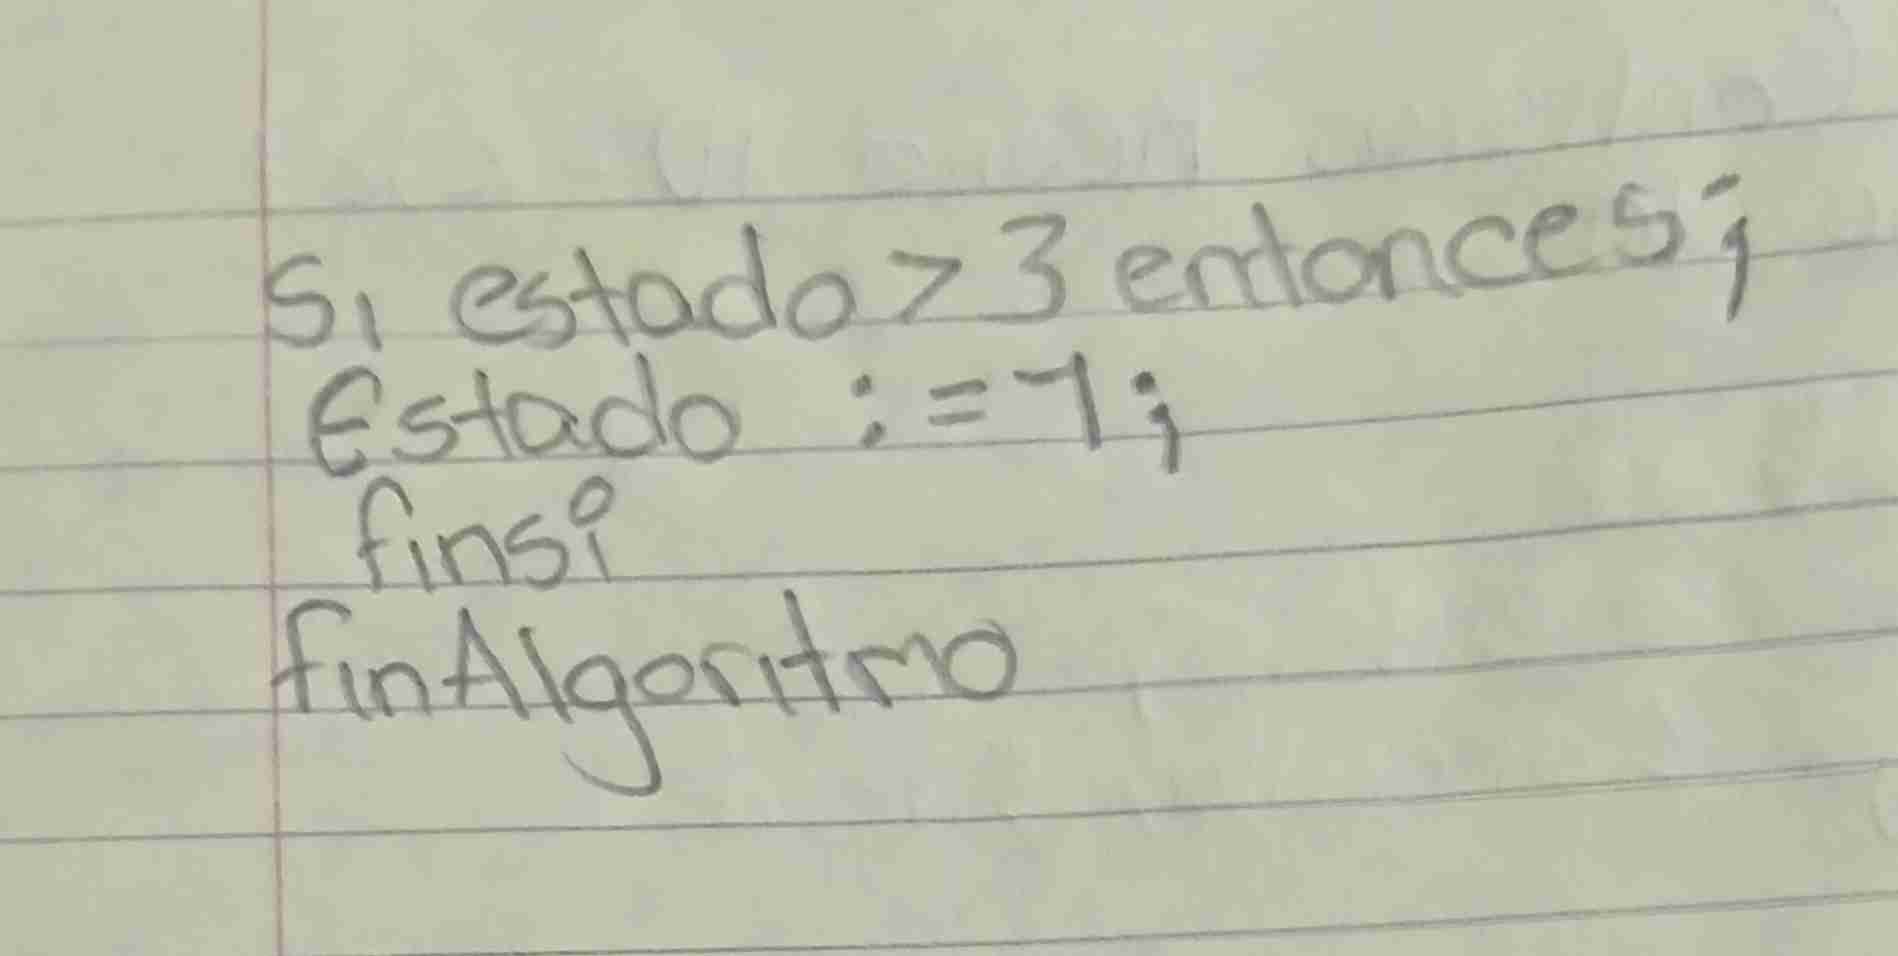 Si estado > 3 entonces;
Estado := 1;
finsi
finAlgoritmo